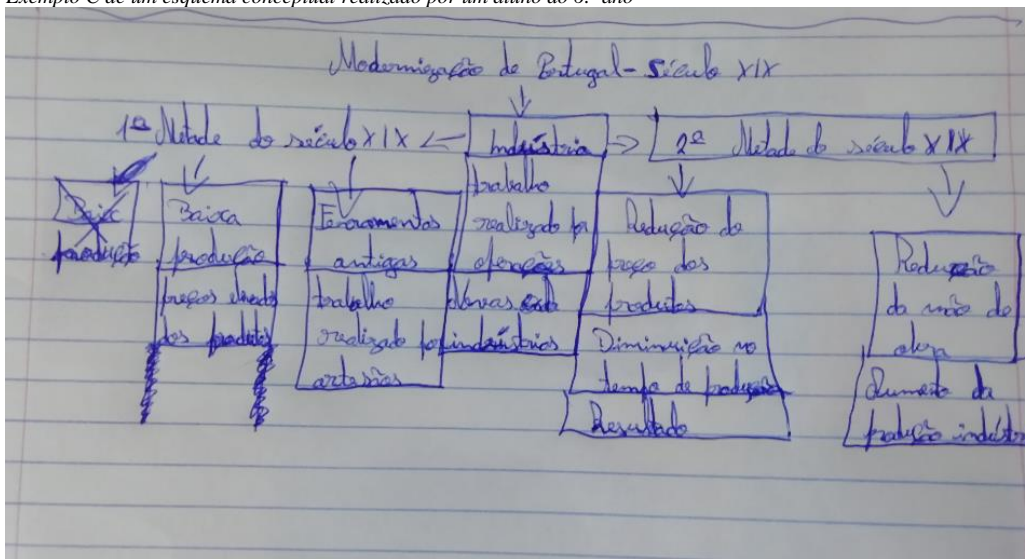 Exemplo C de um esquema conceptual realizado por um aluno do 6.º ano
Modernização de Portugal - Século XIX
1ª Metade do século XIX
Indústria
2ª Metade do século XIX
Baix
produção
Baixa
produção
preços elevados
dos produtos
Ferramentas
antigas
trabalho
realizado por
artesãos
trabalho
realizado por
operações
Novas
indústrias
Redução do
preço dos
produtos
Diminuição no
tempo de produção
Resultado
Redução
da mão de
obra
Aumento da
produção indústr